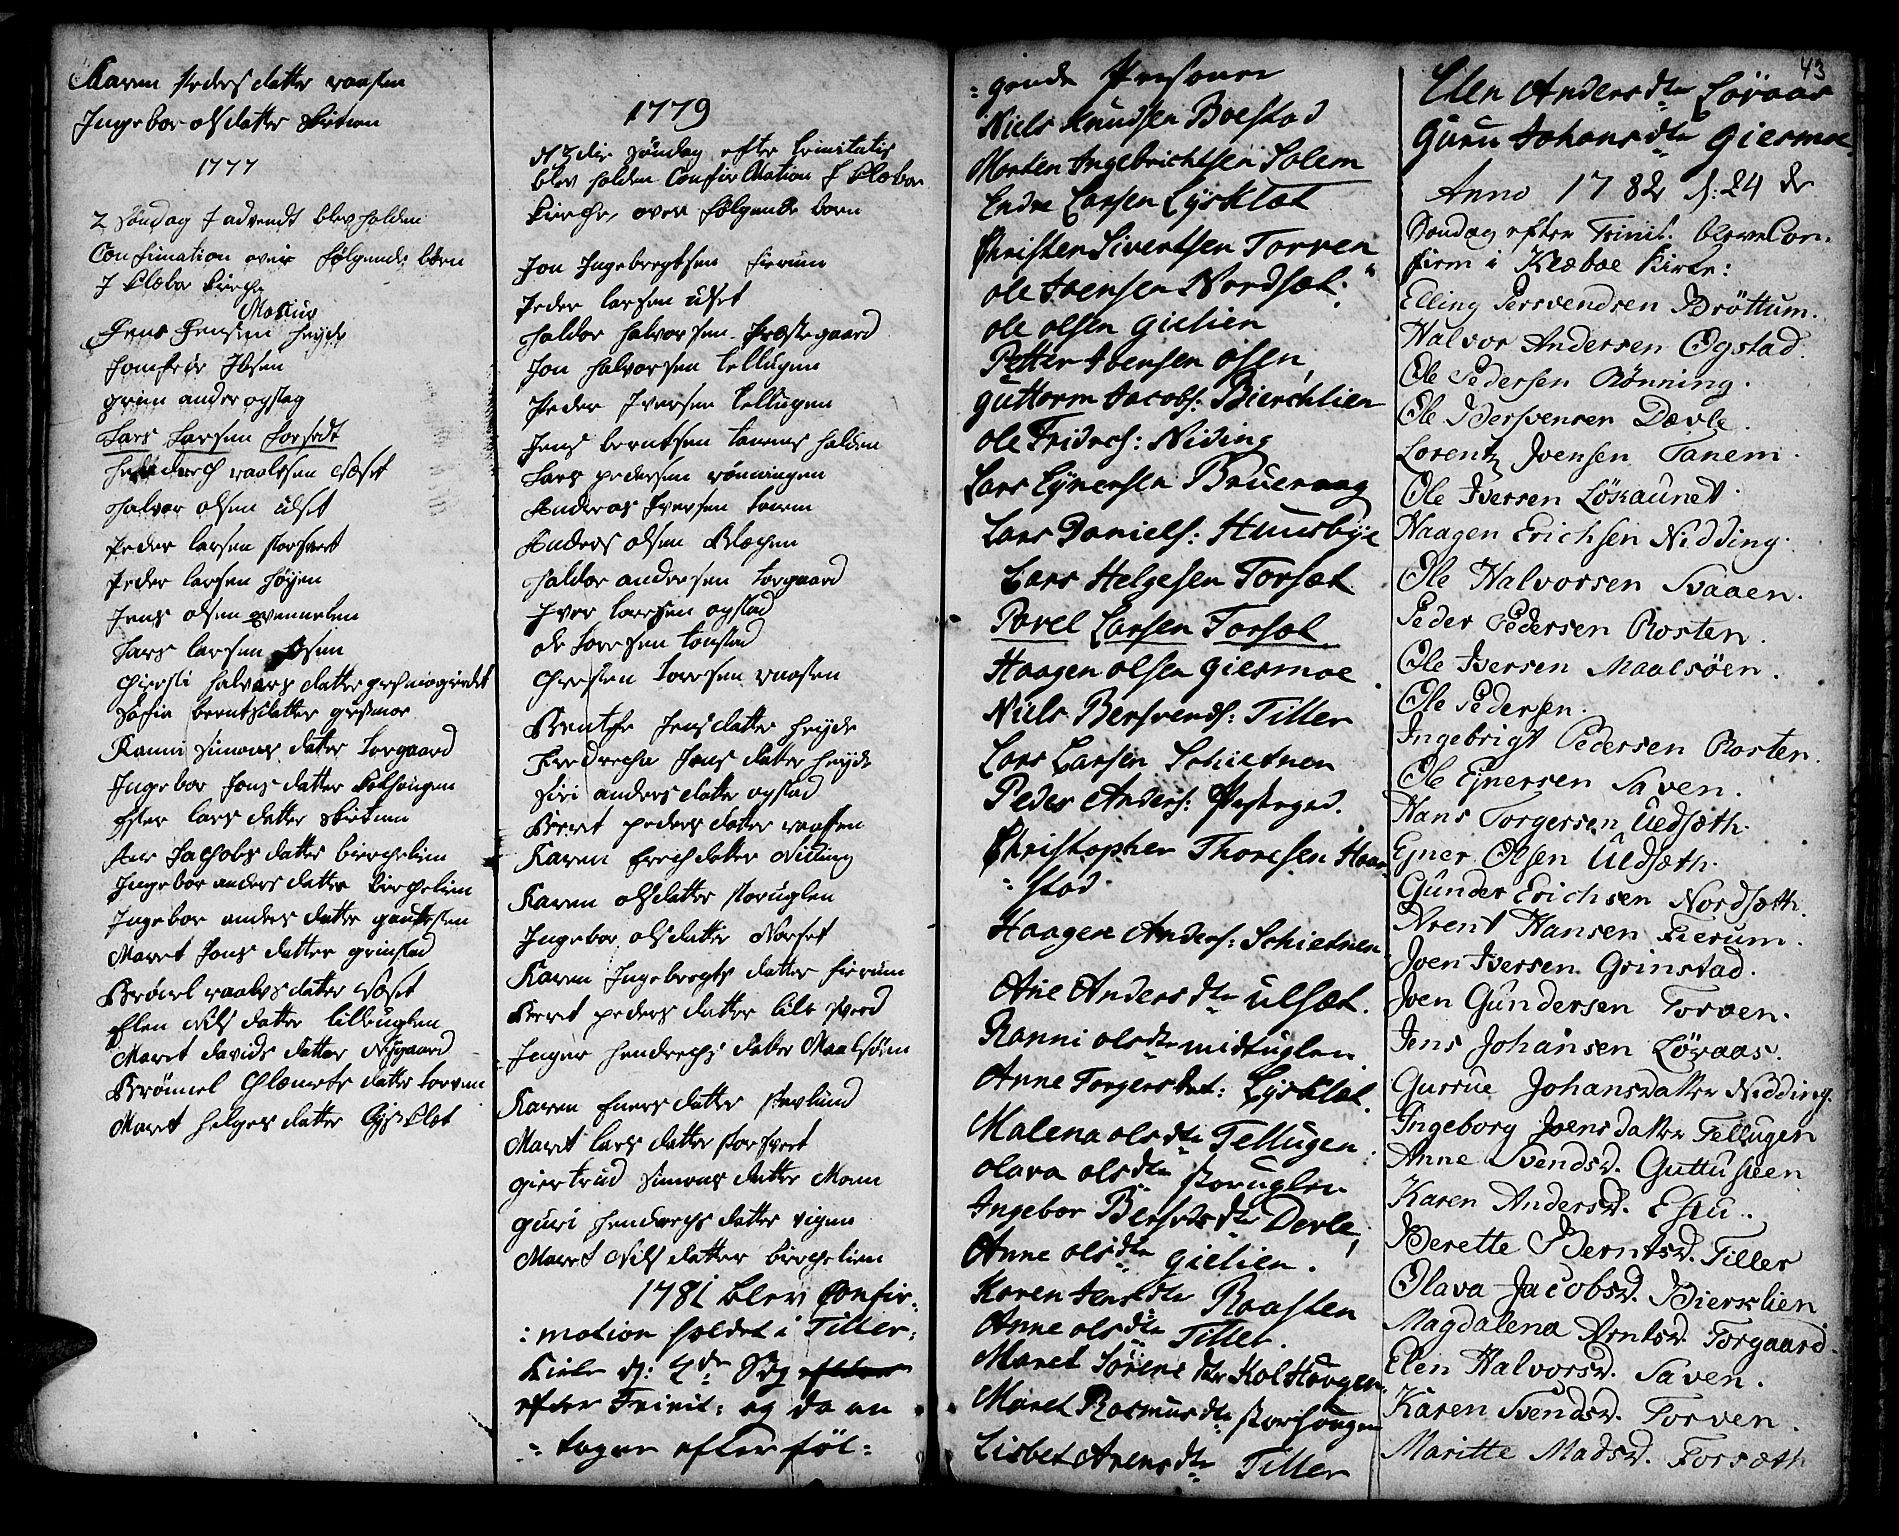 Karen Peders datter raasten
Ingebor olsdatter Skiøtnen
1777
2 søndag J advendt blev holden
Confirmation over følgende børn
J Klæboe Kirche
Jens Jensen Moxius heyde
Jonsen
anders ogstag
Lars Larsen forsedt
Halvor olsen Udset
Peder larsen storsvert
Peder larsen høyen
Jens olsen
Lars larsen osen
halvors datter
berntsdatter giesmoe
Simons datter torgaard
Ingebor Jons datter Kolhougen
lars datter skiøtnen
Jachobs datter bierchelien
Ingebor anders datter bierchelien
Ingebor anders datter
Maret Jons datter grinstad
Brønel datter
Elen Nils datter lilleuglen
Maret davids datter Nygaard
Brønnel Clemets datter torven
Maret helges datter Lysklet
1779
d 3die søndag efter trinitatis
blev holden Confirmation J Klæboe
Kirche over følgende børn
Jon Ingebregtsen fierum
Peder larsen udset
Haldor halvorsen Præstegaard
Jon halvorsen tellugen
Peder Iversen tellugen
Jens berntsen tanems halden
Lars pedersen rønningen
Anders Iversen tanem
Anders olsen Blechen
Haldor andersen torgaard
Iver larsen ogstad
ole toresen tonstad
Christen toresen raasten
Bentse Jens datter heyde
Fredrecha Jens datter heyde
Siri anders datter ogstad
Beret peders datter raasten
Karen Erich datter Nidding
Karen olsdatter storuglen
Ingebor olsdatter Norset
Karen Ingebregts datter fierum
Beret peders datter lile sverd
Inger hendrechs datter Maalsøen
Karen Eners datter
Maret lars datter storsvert
giertrud Simons datter Moen
guri hendrechs datter vigen
Maret Nils datter bierchelien
1781 blev Confir-
:mation holdet i Tiller-
Kirke d: 4de Sdg efter
efter Trinit: og da an
-tagen efter føl:
:gende Personer
Niels Knudsen Boestad
Morten Ingebrichtsen Solem
Endre Larsen Lysklet
Christen Sivertsen Torven
ole Joensen Nordset:
ole olsen gielien
Petter Joensen osen,
guttorm Jacobs: Bierchlien
ole Fridrichs: Niding
Lars Eynersen Brueraag
Lars Daniels: Huusbye
Lars Helgesen Torsæt
Povel Larsen Forset
Haagen olsen giesmoe
Niels Bersvends: Tiller
Lars Larsen Schietnen
Peder Anders: Præstegrd.
Christopher Thoresen Haar
:stad
Haagen Anders: Schietnen
Ane Anders dtr ulsæt.
Ranni olsdtr midtuglen
Anne Torgers dat: Lysklæt.
Malena olsdtr Tellugen.
olava olsdtr storuglen
Ingebor Bersvds dtr Devle,
Anne olsdtr gielien.
Karen Jensdtr Raasten
Anne olsdtr Tiller.
Maret Sørens dtr Kolhougen
Maret Rasmusdtr storhougen
Lisbet Arensdtr Tiller
43
Elen Anders dtr Løvaas
Guru Johans dtr Giesmoe.
Anno 1782 d: 24 de
Søndag efter Trinit. bleve Con-
firm i Klæboe Kirke:
Elling Bersvendsen Brøttum.
Halvor Andersen Ogstad.
Ole Pedersen Rønning.
Ole Bersvensen Dævle.
Lorentz Joensen Tanem.
Ole Iversen Løkaunet.
Haagen Erichsen Nidding.
Ole Halvorsen Svaaen.
Peder Pedersen Rosten.
Ole Iversen Maalsøen.
Ole Pedersen.
Ingebrigt Pedersen Rosten.
Ole Ejnersen Saven.
Hans Torgersen Uedsæth.
Ejner Olsen Uedsæth.
Gunder Erichsen Nordsæth.
Arent Hansen Fierum.
Joen Iversen Grinstad.
Joen Gundersen Torven.
Jens Johansen Løvaas.
Gurrue Johansdatter Nidding.
Ingeborg Joensdatter Tellugen
Anne Svendsd. Guttusteen
Karen Andersd. Estu.
Berette Berntsd. Tiller
Olava Jacobsd. Biersklien
Magdalena Arntsd. Torgaard.
Elen Halvorsd. Saven.
Karen Svendsd. Torven.
Maritte Madsd. Forsæth